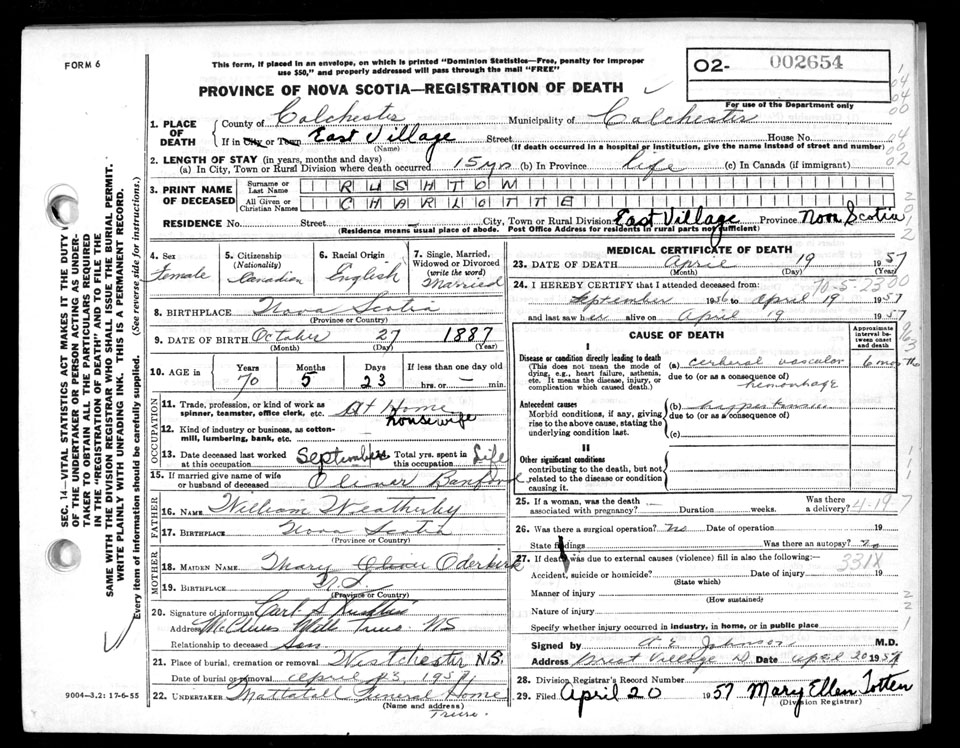 FORM 6
This form, if placed in an envelope, on which is printed "Dominion Statistics—Free, penalty for improper
use $50," and properly addressed will pass through the mail "FREE"
O2- 002654
For use of the Department only
PROVINCE OF NOVA SCOTIA—REGISTRATION OF DEATH
1. PLACE OF DEATH
County of Colchester Municipality of Colchester
If in City or Town East Village Street House No.
(Name) (If death occurred in a hospital or institution, give the name instead of street and number)
2. LENGTH OF STAY (in years, months and days)
(a) In City, Town or Rural Division where death occurred 15 yrs (b) In Province life (c) In Canada (if immigrant)
3. PRINT NAME OF DECEASED
Surname or Last Name RUSHTON
All Given or Christian Names CHARLOTTE
RESIDENCE No. Street City, Town or Rural Division East Village Province Nova Scotia
(Residence means usual place of abode. Post Office Address for residents in rural parts not sufficient)
4. Sex Female
5. Citizenship (Nationality) Canadian
6. Racial Origin English
7. Single, Married, Widowed or Divorced (write the word) Married
8. BIRTHPLACE Nova Scotia
(Province or Country)
9. DATE OF BIRTH October 27 1887
(Month) (Day) (Year)
10. AGE Years 70 Months 5 Days 23 If less than one day old
hrs. or — min.
OCCUPATION
11. Trade, profession, or kind of work as spinner, teamster, office clerk, etc. At Home
housewife
12. Kind of industry or business, as cotton-mill, lumbering, bank, etc.
13. Date deceased last worked at this occupation September Total yrs. spent in this occupation Life
15. If married give name of wife or husband of deceased Oliver
FATHER
16. NAME William Weatherby
17. BIRTHPLACE Nova Scotia
(Province or Country)
MOTHER
18. MAIDEN NAME Mary Oderkirk
19. BIRTHPLACE
(Province or Country)
20. Signature of informant Carl
Address Truro NS
Relationship to deceased Son
21. Place of burial, cremation or removal Westchester N.S.
Date of burial or removal April 23, 1957
22. UNDERTAKER Mattatall Funeral Home
(Name and address)
Truro.
MEDICAL CERTIFICATE OF DEATH
23. DATE OF DEATH April 19 1957
(Month) (Day) (Year)
24. I HEREBY CERTIFY that I attended deceased from: 70-5-2300
September 1956 to April 19 1957
and last saw her alive on April 19 1957
CAUSE OF DEATH
Approximate interval between onset and death
I
Disease or condition directly leading to death
(This does not mean the mode of dying, e.g., heart failure, asthenia, etc. It means the disease, injury, or complication which caused death.)
(a) cerberal vascular 6 months
due to (or as a consequence of)
hemorrhage
Antecedent causes
Morbid conditions, if any, giving rise to the above cause, stating the underlying condition last.
(b) hypertension
due to (or as a consequence of)
(c)
II
Other significant conditions
contributing to the death, but not related to the disease or condition causing it.
25. If a woman, was the death associated with pregnancy? Duration weeks. Was there a delivery? 4-19-7
26. Was there a surgical operation? No Date of operation 19
State findings Was there an autopsy? No
27. If death was due to external causes (violence) fill in also the following:—
331X
Accident, suicide or homicide? Date of injury 19
(State which)
Manner of injury
(How sustained)
Nature of injury
Specify whether injury occurred in industry, in home, or in public place
Signed by Johnson M.D.
Address Village Date April 20 1957
28. Division Registrar's Record Number
29. Filed April 20 1957 Mary Ellen Totten
(Division Registrar)
SEC. 14—VITAL STATISTICS ACT MAKES IT THE DUTY
OF THE UNDERTAKER OR PERSON ACTING AS UNDER-
TAKER TO OBTAIN ALL THE PARTICULARS REQUIRED
IN THE "REGISTRATION OF DEATH" AND TO FILE THE
SAME WITH THE DIVISION REGISTRAR WHO SHALL ISSUE THE BURIAL PERMIT.
WRITE PLAINLY WITH UNFADING INK. THIS IS A PERMANENT RECORD.
Every item of information should be carefully supplied. (See reverse side for instructions.)
9004—3,2: 17-6-55